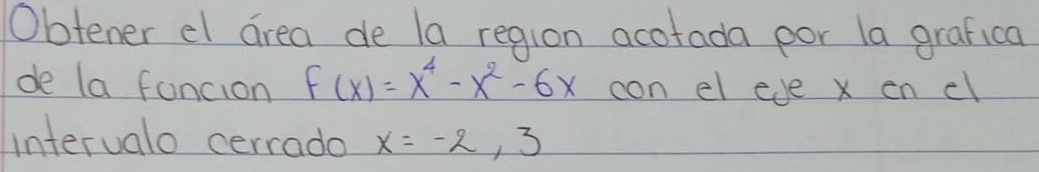 Obtener el área de la region acotada por la grafica
de la funcion f(x) = x⁴ - x² - 6x con el eje x en el
intervalo cerrado x = -2, 3